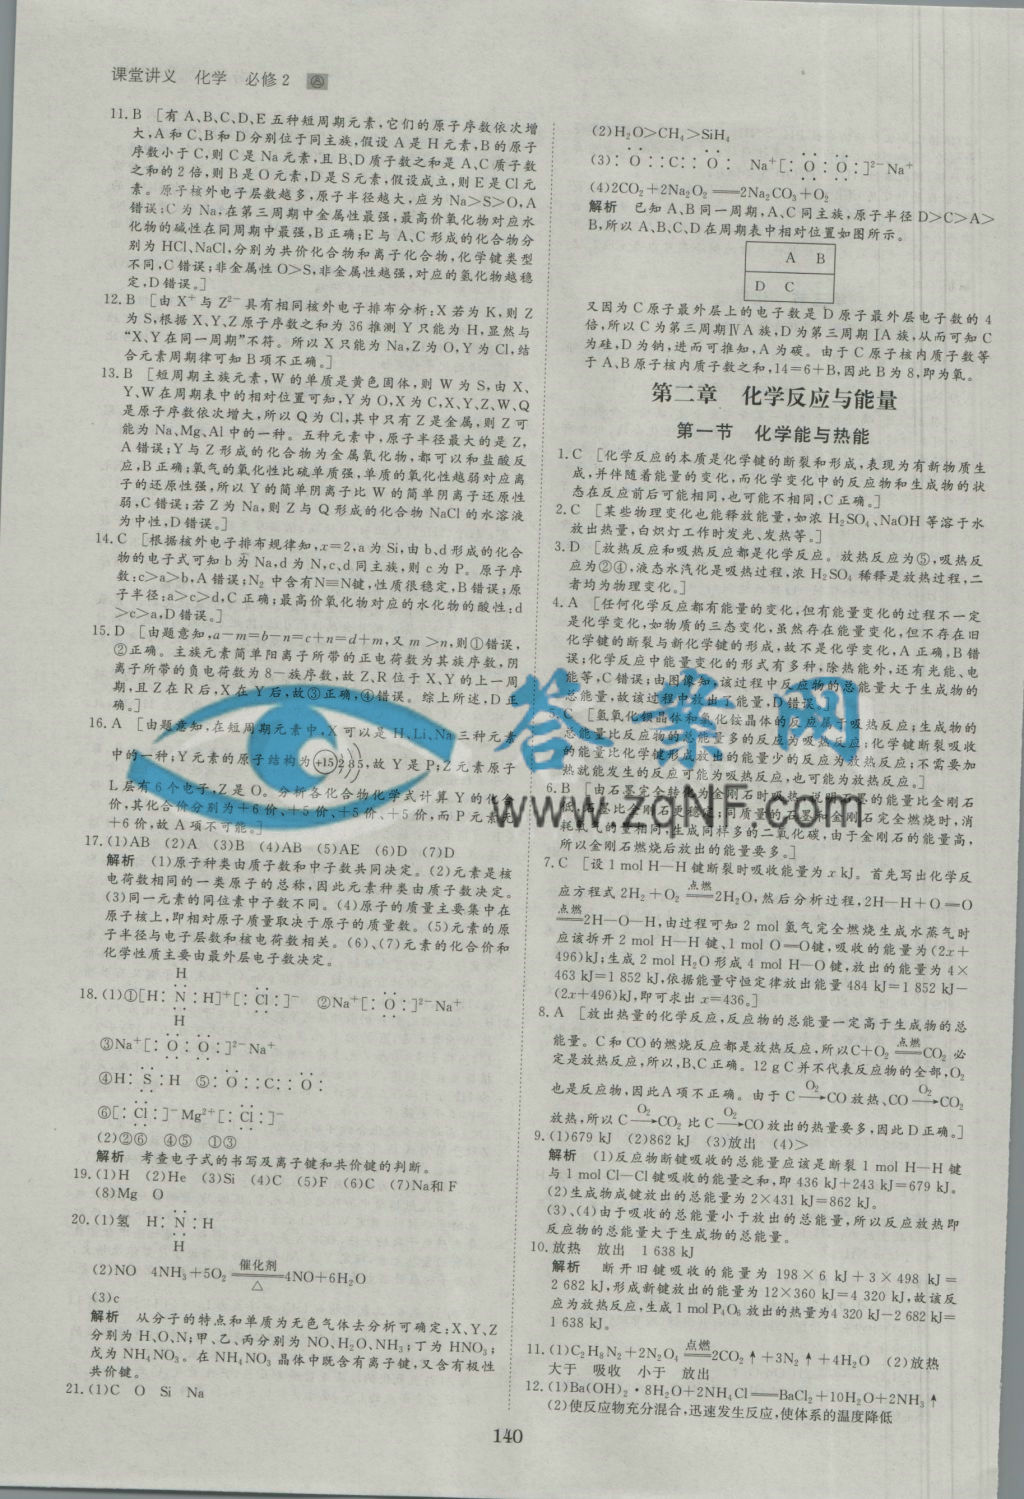 课堂讲义 化学 必修2
11.B [有 A、B、C、D、E 五种短周期元素,它们的原子序数依次增
大,A 和 C、B 和 D 分别位于同主族,假设 A 是 H 元素,B 的原子
序数小于 C,则 C 是 Na 元素,且 B、D 质子数之和是 A、C 质子数
之和的 2 倍,则 B 是 O 元素,D 是 S 元素,假设成立,则 E 是 Cl 元
素。原子核外电子层数越多,原子半径越大,应为 Na>S>O,A
错误;C 为 Na,在第三周期中金属性最强,最高价氧化物对应水
化物的碱性在同周期中最强,B 正确;E 与 A、C 形成的化合物分
别为 HCl、NaCl,分别为共价化合物和离子化合物,化学键类型
不同,C 错误;非金属性 O>S,非金属性越强,对应的氢化物越稳
定,D 错误。]
12.B [由 X⁺ 与 Z²⁻ 具有相同核外电子排布分析:X 若为 K,则 Z
为 S,根据 X、Y、Z 原子序数之和为 36 推测 Y 只能为 H,显然与
“X、Y 在同一周期”不符。所以 X 只能为 Na,Z 为 O,Y 为 Cl,结
合元素周期律可知 B 项不正确。]
13.B [短周期主族元素,W 的单质是黄色固体,则 W 为 S,由 X、
Y、W 在周期表中的相对位置可知,Y 为 O,X 为 C,X、Y、Z、W、Q
是原子序数依次增大,所以 Q 为 Cl,其中只有 Z 是金属,则 Z 可
能为 Na、Mg、Al 中的一种。五种元素中,原子半径最大的是 Z,
A 错误;Y 与 Z 形成的化合物为金属氧化物,都可以和盐酸反
应,B 正确;氧气的氧化性比硫单质强,单质的氧化性越弱对应离
子的还原性强,所以 Y 的简单阴离子比 W 的简单阴离子还原性
弱,C 错误;若 Z 为 Na,则 Z 与 Q 形成的化合物 NaCl 的水溶液
为中性,D 错误。]
14.C [根据核外电子排布规律知,x=2,a 为 Si,由 b、d 形成的化合
物的电子式可知 b 为 Na,d 为 N,c、d 同主族,则 c 为 P。原子序
数:c>a>b,A 错误;N₂ 中含有 N≡N 键,性质很稳定,B 错误;原
子半径:a>c>d,C 正确;最高价氧化物对应的水化物的酸性:d
>c>a,D 错误。]
15.D [由题意知,a-m=b-n=c+n=d+m,又 m>n,则①错误,
②正确。主族元素简单阳离子所带的正电荷数为其族序数,阴
离子所带的负电荷数为 8-族序数,故 Z、R 位于 X、Y 的上一周
期,且 Z 在 R 后,X 在 Y 后,故③正确,④错误。综上所述,D 正
确。]
16.A [由题意知,在短周期元素中,X 可以是 H、Li、Na 三种元素
中的一种;Y 元素的原子结构为 +15 2 8 5,故 Y 是 P;Z 元素原子
L 层有 6 个电子,Z 是 O。分析各化合物化学式计算 Y 的化合
价,其化合价分别为+6 价、+5 价、+5 价、+5 价,而 P 元素无
+6 价,故 A 项不可能。]
17.(1)AB (2)A (3)B (4)AB (5)AE (6)D (7)D
解析 (1)原子种类由质子数和中子数共同决定。(2)元素是核
电荷数相同的一类原子的总称,因此元素种类由质子数决定。
(3)同一元素的同位素中子数不同。(4)原子的质量主要集中在
原子核上,即相对原子质量取决于原子的质量数。(5)元素的原
子半径与电子层数和核电荷数相关。(6)、(7)元素的化合价和
化学性质主要由最外层电子数决定。
H
18.(1)①[H:N:H]⁺[:Cl:]⁻ ②Na⁺[:O:]²⁻Na⁺
H
③Na⁺[:O:O:]²⁻Na⁺
④H:S:H ⑤:O::C::O:
⑥[:Cl:]⁻Mg²⁺[:Cl:]⁻
(2)②⑥ ④⑤ ①③
解析 考查电子式的书写及离子键和共价键的判断。
19.(1)H (2)He (3)Si (4)C (5)F (6)C (7)Na和F
(8)Mg O
20.(1)氢 H:N:H
H
(2)NO 4NH₃+5O₂ 催化剂══△ 4NO+6H₂O
(3)c
解析 从分子的特点和单质为无色气体去分析可确定:X、Y、Z
分别为 H、O、N;甲、乙、丙分别为 NO、H₂O、NH₃;丁为 HNO₃;
戊为 NH₄NO₃。在 NH₄NO₃ 晶体中既含有离子键,又含有极性
共价键。
21.(1)C O Si Na
(2)H₂O>CH₄>SiH₄
(3):O::C::O: Na⁺[:O:O:]²⁻Na⁺
(4)2CO₂+2Na₂O₂══2Na₂CO₃+O₂
解析 已知 A、B 同一周期,A、C 同主族,原子半径 D>C>A>
B,所以 A、B、C、D 在周期表中相对位置如图所示。
A B
D C
又因为 C 原子最外层上的电子数是 D 原子最外层电子数的 4
倍,所以 C 为第三周期ⅣA族,D 为第三周期ⅠA族,从而可知 C
为硅,D 为钠,进而可推知,A 为碳。由于 C 原子核内质子数等
于 A、B 原子核内质子数之和,14=6+B,因此 B 为 8,即为氧。
第二章 化学反应与能量
第一节 化学能与热能
1.C [化学反应的本质是化学键的断裂和形成,表现为有新物质生
成,并伴随着能量的变化,而化学变化中的反应物和生成物的状
态在反应前后可能相同,也可能不相同,C 正确。]
2.C [某些物理变化也能释放能量,如浓 H₂SO₄、NaOH 等溶于水
放出热量,白炽灯工作时发光、发热等。]
3.D [放热反应和吸热反应都是化学反应。放热反应为⑤,吸热反
应为②④,液态水汽化是吸热过程,浓 H₂SO₄ 稀释是放热过程,二
者均为物理变化。]
4.A [任何化学反应都有能量的变化,但有能量变化的过程不一定
是化学变化,如物质的三态变化,虽然存在能量变化,但不存在旧
化学键的断裂与新化学键的形成,故不是化学变化,A 正确,B 错
误;化学反应中能量变化的形式有多种,除热能外,还有光能、电
能等,C 错误;由图像知,该过程中反应物的总能量大于生成物的
总能量,故该过程中放出了能量,D 错误。]
5.C [氢氧化钡晶体和氯化铵晶体的反应属于吸热反应;生成物的
总能量比反应物的总能量多的反应为吸热反应;化学键断裂吸收
的能量比化学键形成放出的能量少的反应为放热反应;不需要加
热就能发生的反应可能为吸热反应,也可能为放热反应。]
6.B [由石墨完全转化为金刚石时吸热,说明石墨的能量比金刚石
低,石墨比金刚石更稳定;同质量的石墨和金刚石完全燃烧时,消
耗氧气的量相同,生成同样多的二氧化碳,由于金刚石的能量高,
所以金刚石燃烧后放出的能量要多。]
7.C [设 1 mol H—H 键断裂时吸收能量为 x kJ。首先写出化学反
应方程式 2H₂+O₂ 点燃══ 2H₂O,然后分析过程,2H—H+O═O
点燃══ 2H—O—H,由过程可知 2 mol 氢气完全燃烧生成水蒸气时
应该拆开 2 mol H—H 键、1 mol O═O键,吸收的能量为(2x+
496)kJ;生成 2 mol H₂O 形成 4 mol H—O 键,放出的能量为 4×
463 kJ=1 852 kJ,依据能量守恒定律放出能量 484 kJ=1 852 kJ-
(2x+496)kJ,即可求出 x=436。]
8.A [放出热量的化学反应,反应物的总能量一定高于生成物的总
能量。C 和 CO 的燃烧反应都是放热反应,所以C+O₂ 点燃══ CO₂ 必
定是放热反应,所以,B、C 正确。12 g C 并不代表反应物的全部,O₂
也是反应物,因此A项不正确。由于 C O₂→ CO 放热、CO O₂→ CO₂
放热,所以 C O₂→ CO₂ 比 C O₂→ CO 放出的热量要多,因此 D 正确。]
9.(1)679 kJ (2)862 kJ (3)放出 (4)>
解析 (1)反应物断键吸收的总能量应该是断裂 1 mol H—H 键
与 1 mol Cl—Cl 键吸收的能量之和,即 436 kJ+243 kJ=679 kJ。
(2)生成物成键放出的总能量为 2×431 kJ=862 kJ。
(3)、(4)由于吸收的总能量小于放出的总能量,所以反应放热即
反应物的总能量大于生成物的总能量。
10.放热 放出 1 638 kJ
解析 断开旧键吸收的能量为 198×6 kJ+3×498 kJ=
2 682 kJ,形成新键放出的能量为 12×360 kJ=4 320 kJ,故该反
应为放热反应,生成 1 mol P₄O₆ 放出的热量为4 320 kJ-2 682 kJ=
1 638 kJ。
11.(1)C₂H₈N₂+2N₂O₄ 点燃══ 2CO₂↑+3N₂↑+4H₂O (2)放热
大于 吸收 小于 放出
12.(1)Ba(OH)₂·8H₂O+2NH₄Cl══BaCl₂+10H₂O+2NH₃↑
(2)使反应物充分混合,迅速发生反应,使体系的温度降低
140
答案网
www.zqNF.com